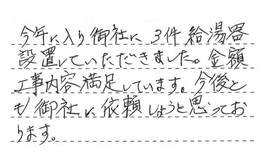 今年に入り御社に3件給湯器
設置していただきました。金額
工事内容満足しています。今後と
も御社に依頼しようと思ってお
ります。